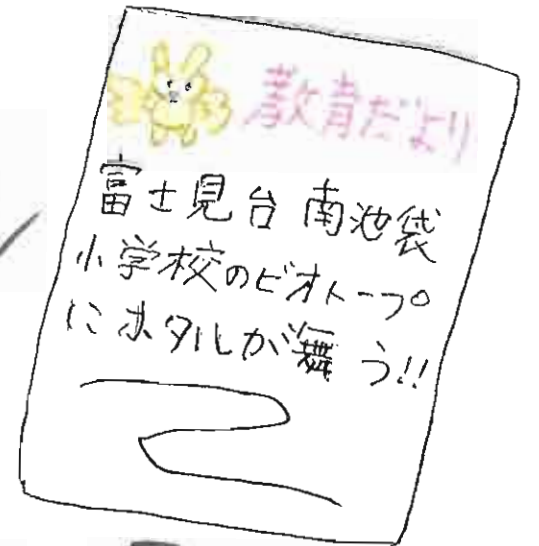 教育だより
富士見台 南池袋
小学校のビオトープ
にホタルが舞う!!